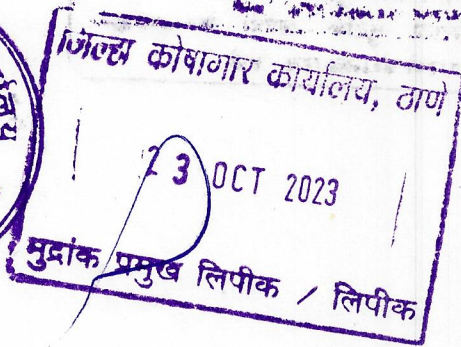 जिल्हा कोषागार कार्यालय, ठाणे
23 OCT 2023
मुद्रांक प्रमुख लिपीक / लिपीक